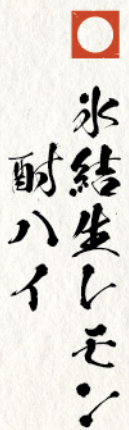 氷結生レモン
酎ハイ